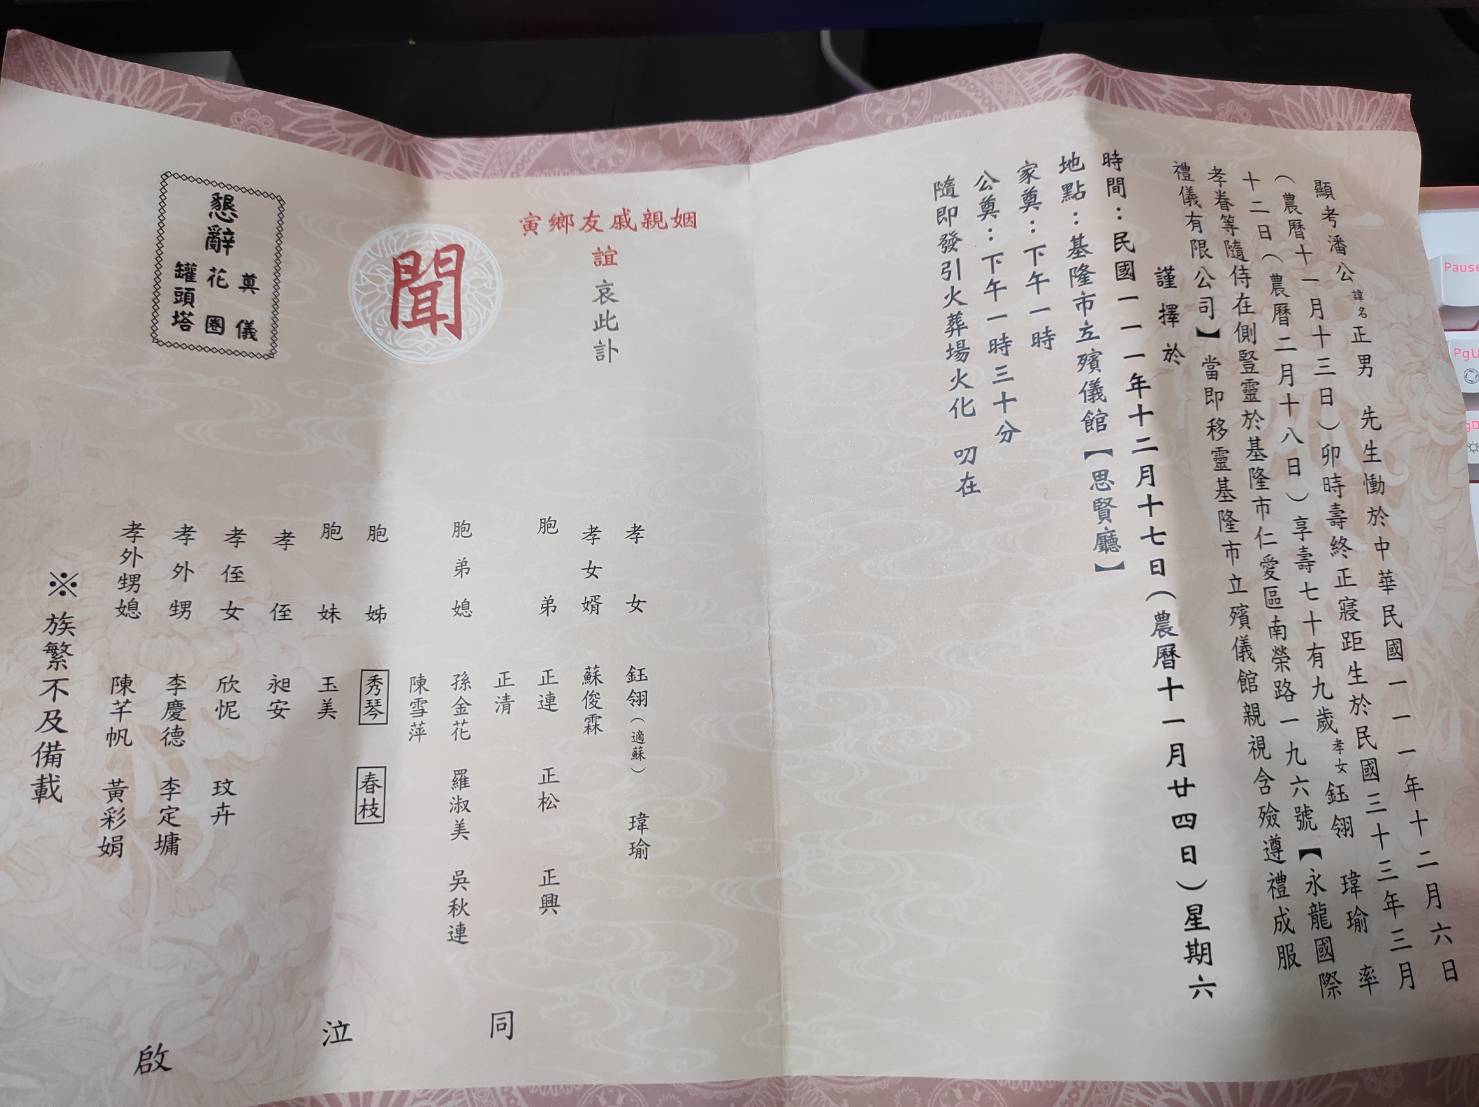 顯考潘公諱名正男　先生慟於中華民國一一一年十二月六日
(農曆十一月十三日)卯時壽終正寢距生於民國三十三年三月
十二日(農曆二月十八日)享壽七十有九歲孝女鈺翎　瑋瑜　率
孝眷等隨侍在側豎靈於基隆市仁愛區南榮路一九六號【永龍國際
禮儀有限公司】當即移靈基隆市立殯儀館親視含殮遵禮成服
謹擇於
時間：民國一一一年十二月十七日(農曆十一月廿四日)星期六
地點：基隆市立殯儀館【思賢廳】
家奠：下午一時
公奠：下午一時三十分
隨即發引火葬場火化　叨在
寅鄉友戚親姻
誼哀此訃
聞
懇辭
奠儀
花圈
罐頭塔
孝女　鈺翎(適蘇)　瑋瑜
孝女婿　蘇俊霖
胞弟　正連　正松　正興
正清
胞弟媳　孫金花　羅淑美　吳秋連
陳雪萍
胞姊　秀琴　春枝
胞妹　玉美
孝侄　昶安
孝侄女　欣怩　玟卉
孝外甥　李慶德　李定墉
孝外甥媳　陳芊帆　黃彩娟
※族繁不及備載
同
泣
啟